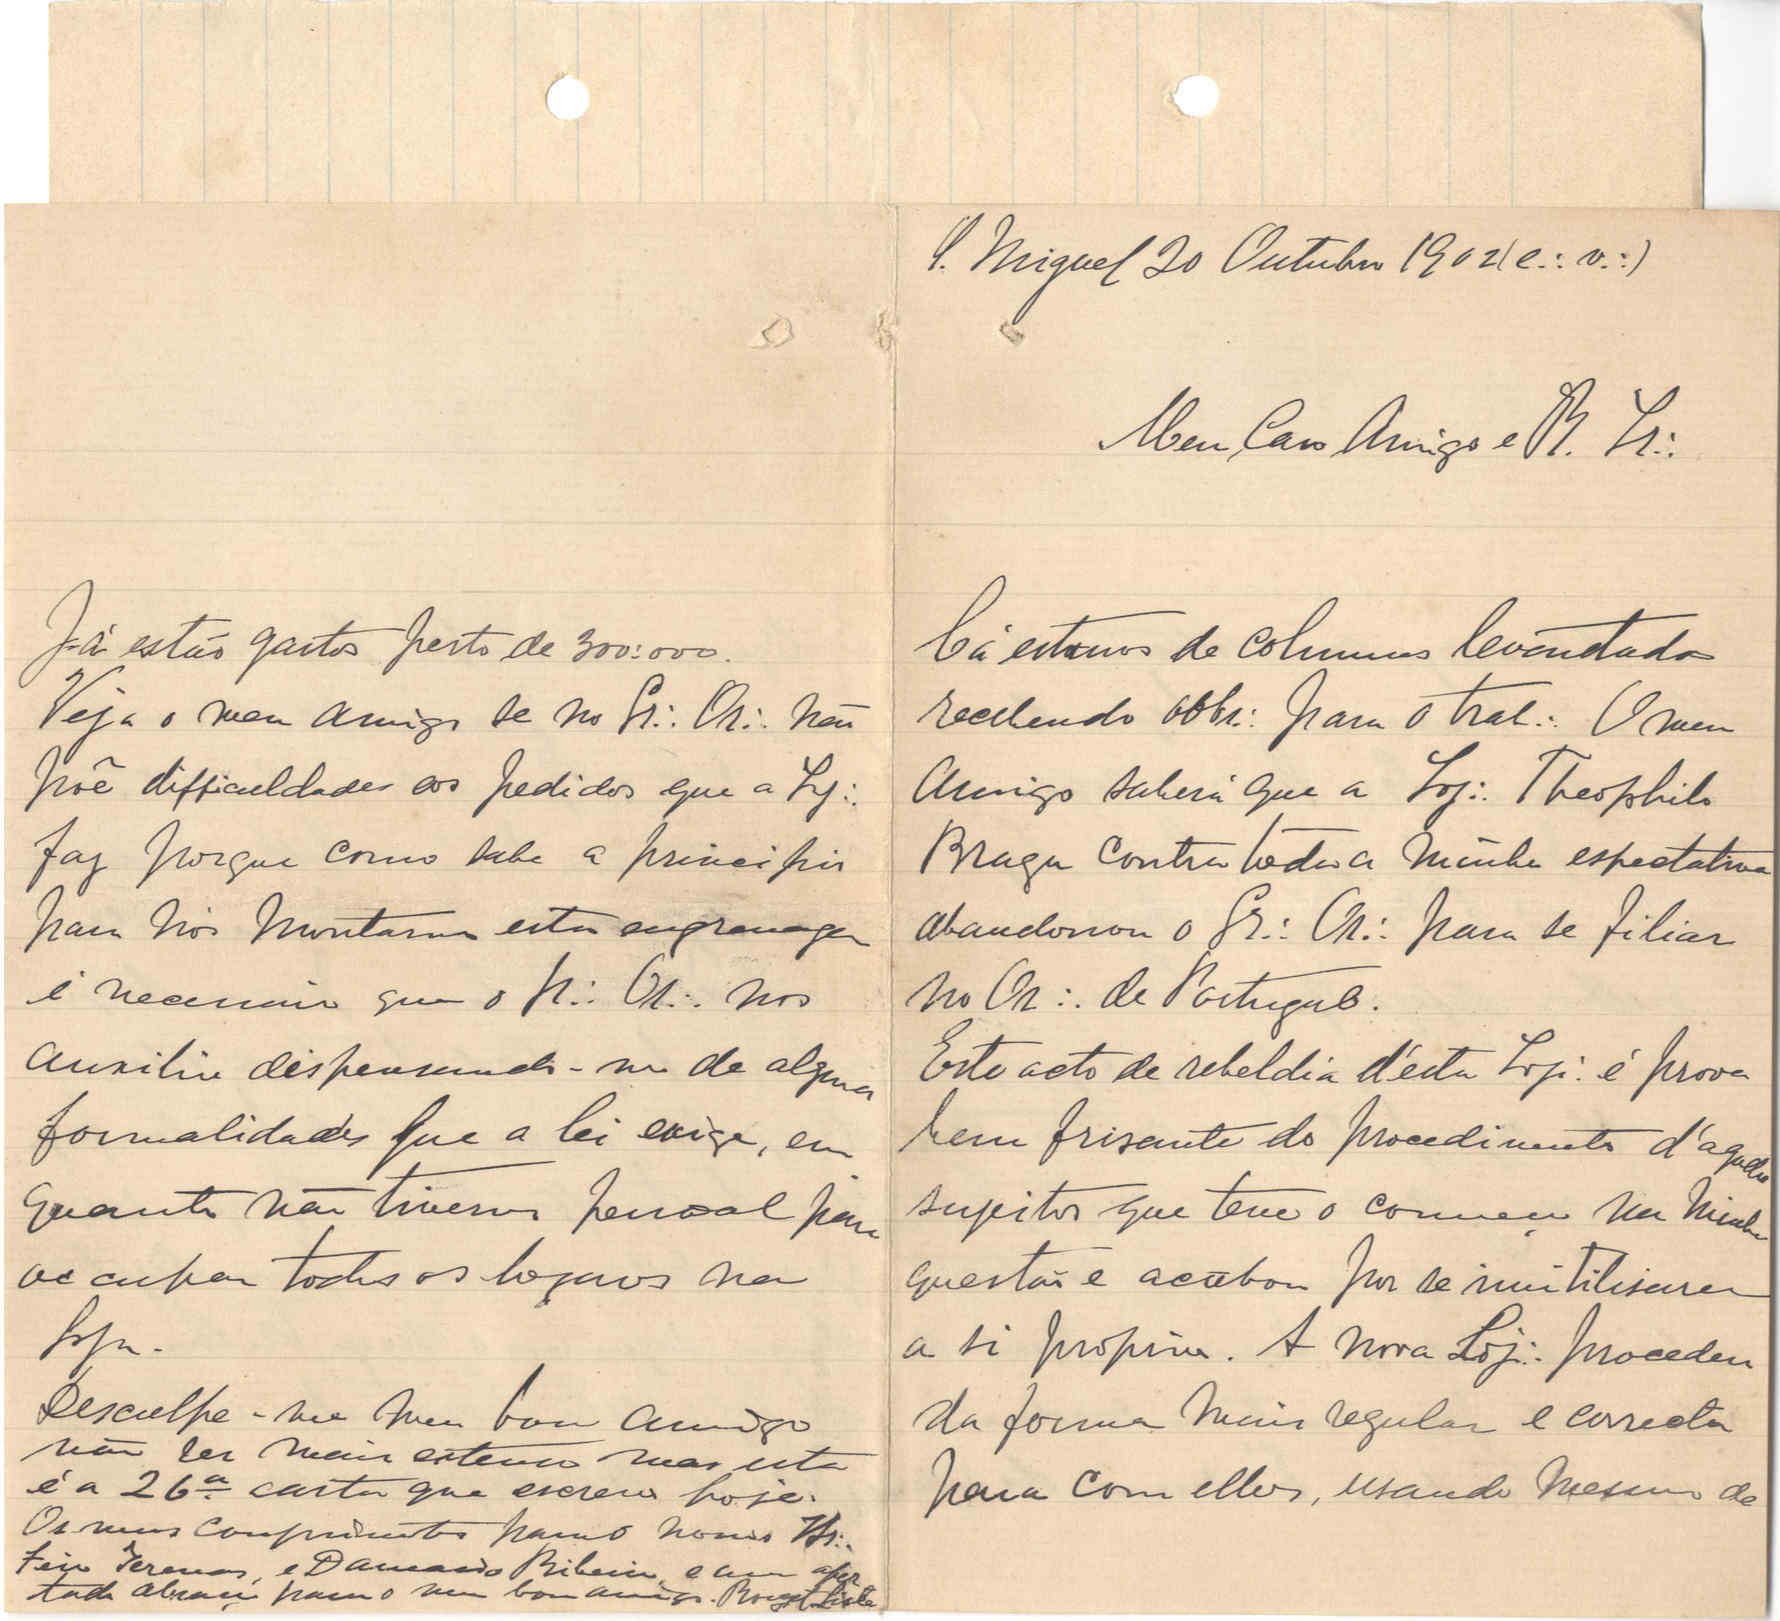 S. Miguel 20 Outubro 1902 (e.: v.:)
Meu Caro Amigo e R. Ir.:
Cá estamos de columnas levantadas
recebendo obbr.: para o trab.: O meu
Amigo saberá que a Loj.: Theophilo
Braga contra toda a minha espectativa
abandonou o Gr.: Or.: para se filiar
no Or.: de Portugal.
Este acto de rebeldia d'esta Loj.: é prova
bem frisante do procedimento d'aquelles
sujeitos que teve o começo na minha
questão e acabou por se inutilisarem
a si proprios. A nova Loj.: procedeu
da forma mais regular e correcta
para com elles, usando mesmo de
Já estão gastos perto de 300:000.
Veja o meu amigo se no Gr.: Or.: não
põe difficuldades aos pedidos que a Lj.:
faz porque como sabe a principio
para nós montarmos esta engrenagem
é necessario que o Gr.: Or.: nos
auxilie dispensando-nos de algumas
formalidades que a lei exige, em
quanto não tivermos pessoal para
occupar todos os logares na
Loja.
Desculpe-me meu bom amigo
não ser mais extenso mas esta
é a 26ª carta que escrevo hoje.
Os meus comprimentos para o nosso Ir.:
Feio Terenas, e Damasio Ribeiro, e um aper
tado abraço para o meu bom amigo.